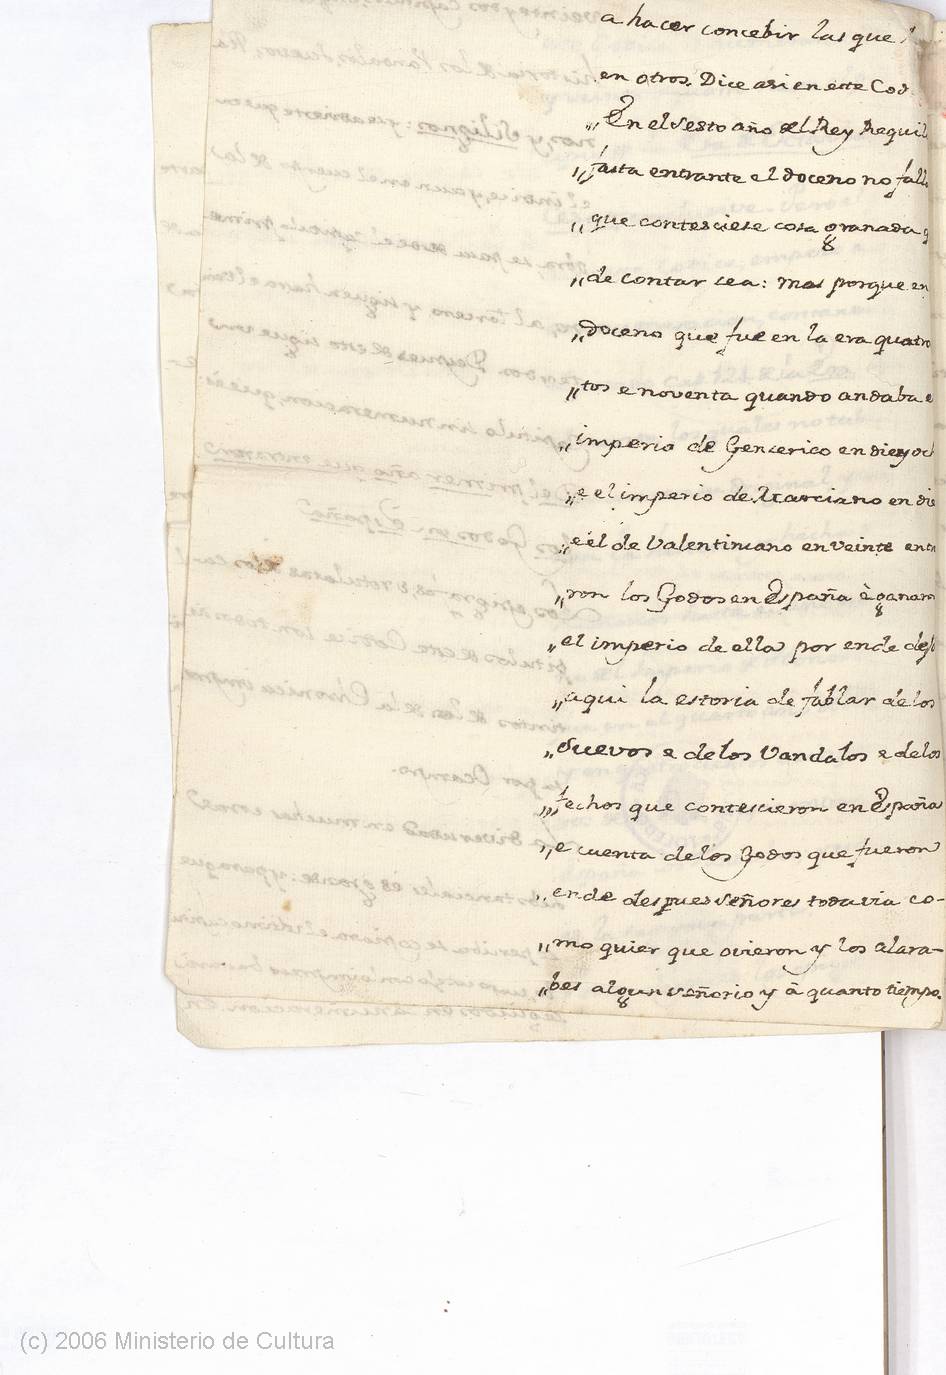 a hacer concebir las que
en otros. Dice asi en este Cod
„En el sesto año del Rey Requil
„fasta entrante el doceno no fall
„que contesciese cosa granada q
„de contar sea: mas porque en
„doceno que fue en la era quatro
„tos e noventa quando andaba e
„imperio de Genserico en diez y och
„e el imperio de Marciano en die
„e el de Valentiniano en veinte entra
„ron los Godos en España è ganaron
„el imperio de ella por ende dejó
„aqui la estoria de fablar de los
„Suevos e de los Vandalos e de los
„fechos que contescieron en España
„e cuenta de los Godos que fueron
„ende despues señores todavia co-
„mo quier que ovieron y los alara-
„bes algun señorio y à quanto tiempo.
(c) 2006 Ministerio de Cultura